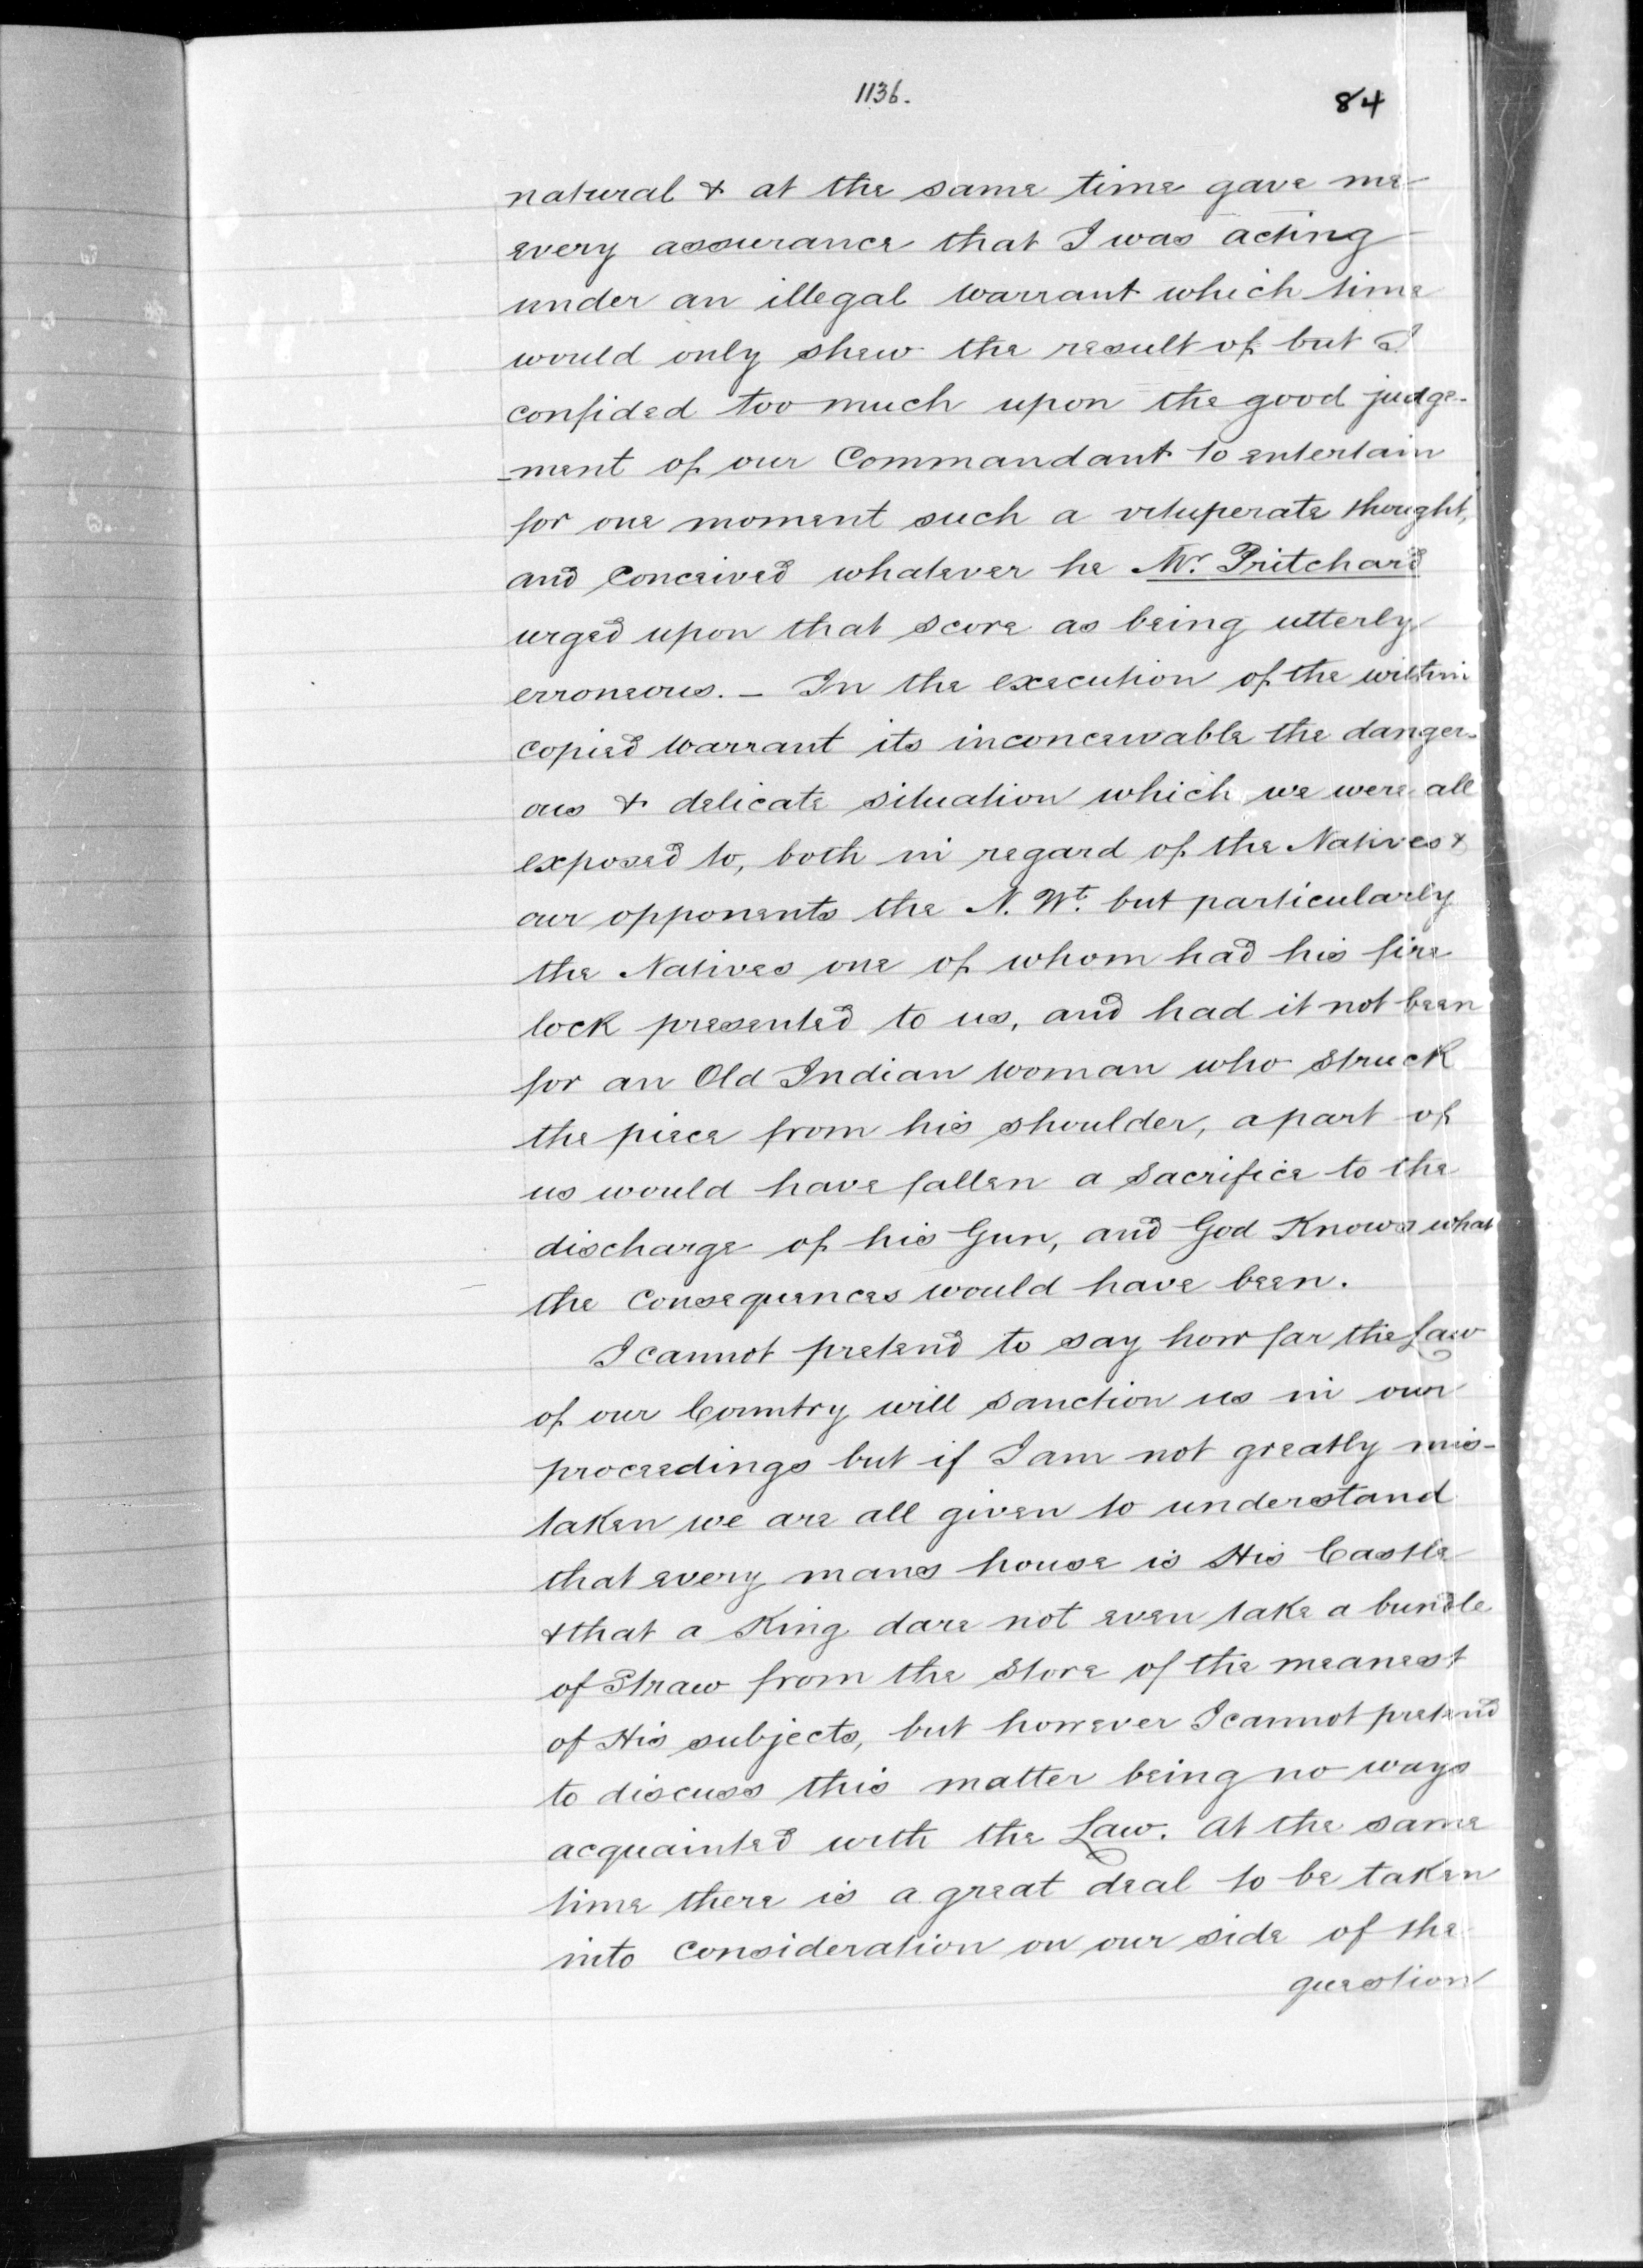 1136.
84
natural & at the same time gave me
every assurance that I was acting
under an illegal warrant which time
would only shew the result of but I
confided too much upon the good judge-
-ment of our Commandant to entertain
for one moment such a vituperate thought,
and conceived whatever he Mr. Pritchard
urged upon that score as being utterly
erroneous. — In the execution of the within
copied warrant its inconceivable the danger-
ous & delicate situation which we were all
exposed to, both in regard of the Natives &
our opponents the N. Wt. but particularly
the Natives one of whom had his fire
lock presented to us, and had it not been
for an Old Indian woman who struck
the piece from his shoulder, a part of
us would have fallen a sacrifice to the
discharge of his Gun, and God Knows what
the consequences would have been.
I cannot pretend to say how far the Law
of our Country will sanction us in our
proceedings but if I am not greatly mis-
taken we are all given to understand
that every mans house is His Castle
& that a King dare not even take a bundle
of Straw from the store of the meanest
of His subjects, but however I cannot pretend
to discuss this matter being no ways
acquainted with the Law. At the same
time there is a great deal to be taken
into consideration on our side of the
question